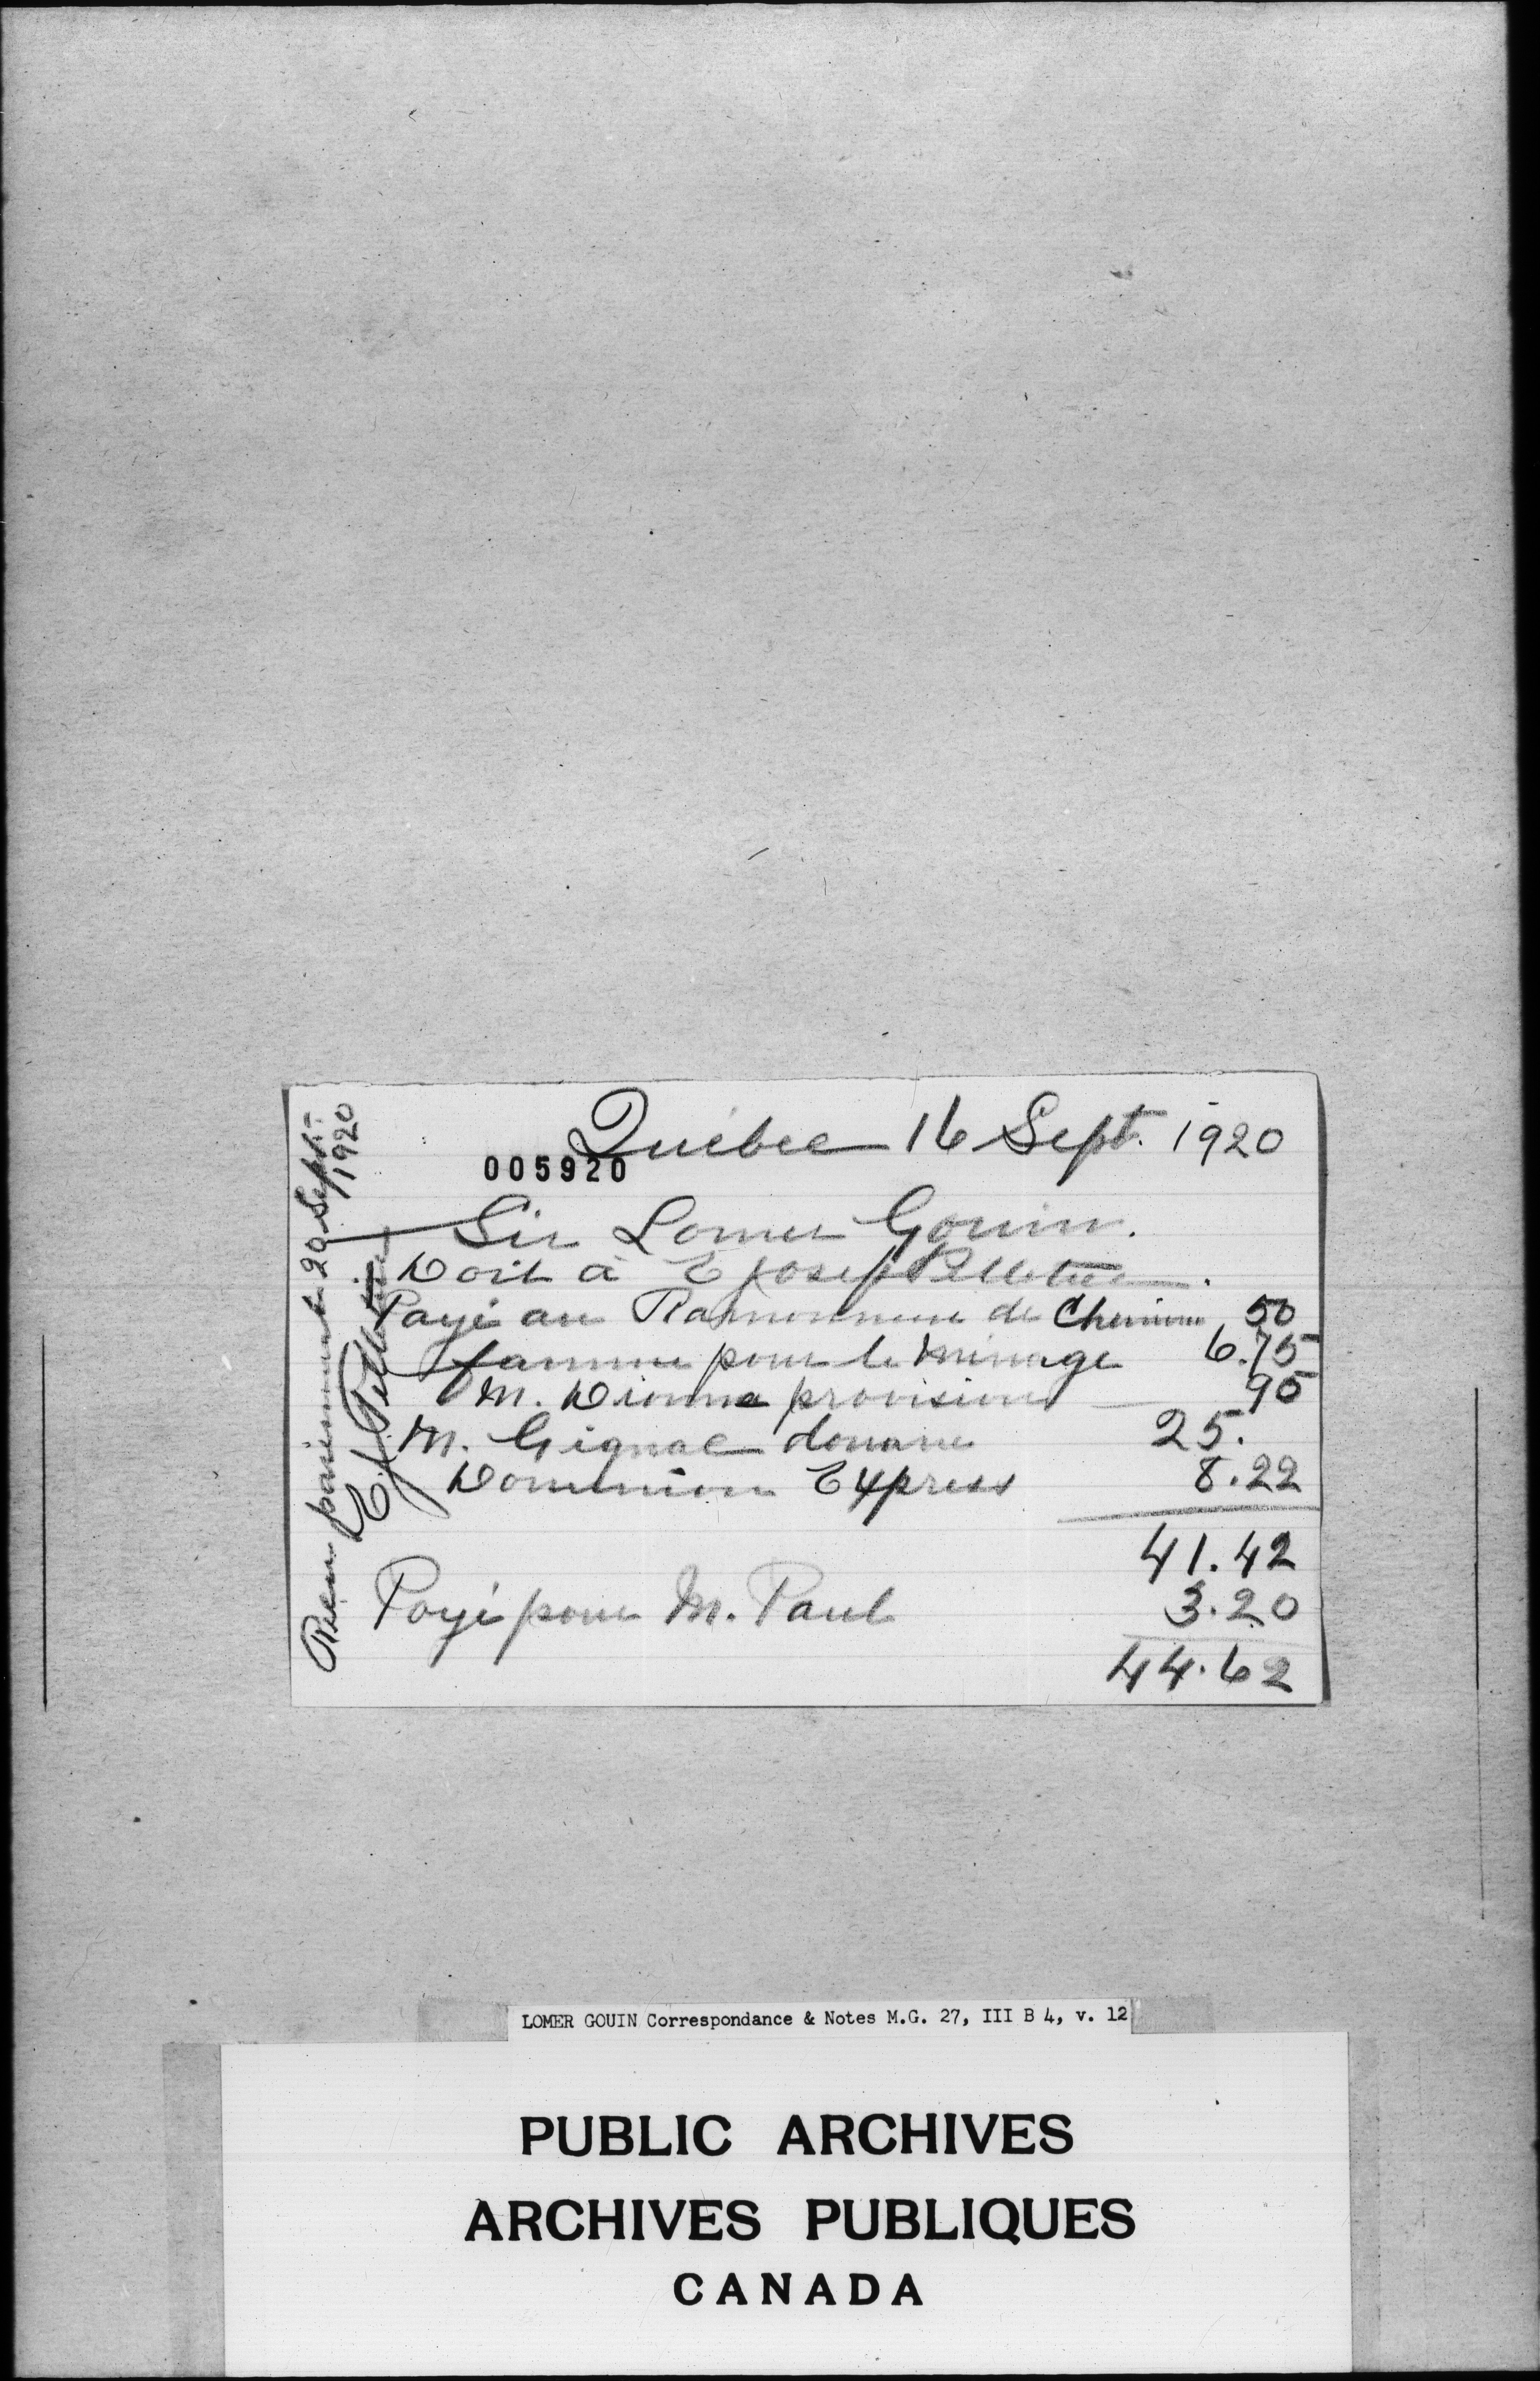 Québec 16 Sept. 1920
005920
Sir Lomer Gouin.
Doit à E Joseph Pelletier.
Payé au Ramonneur de Cheminee 50
famme pour le ménage 6.75
M. Dionne provision 95
M. Gignac douane 25.
Dominion Express 8.22
41.42
Payé pour M. Paul 3.20
44.62
Recu paiement 20 Sept. 1920
E. J. Pelletier
LOMER GOUIN Correspondance & Notes M.G. 27, III B 4, v. 12
PUBLIC ARCHIVES
ARCHIVES PUBLIQUES
CANADA